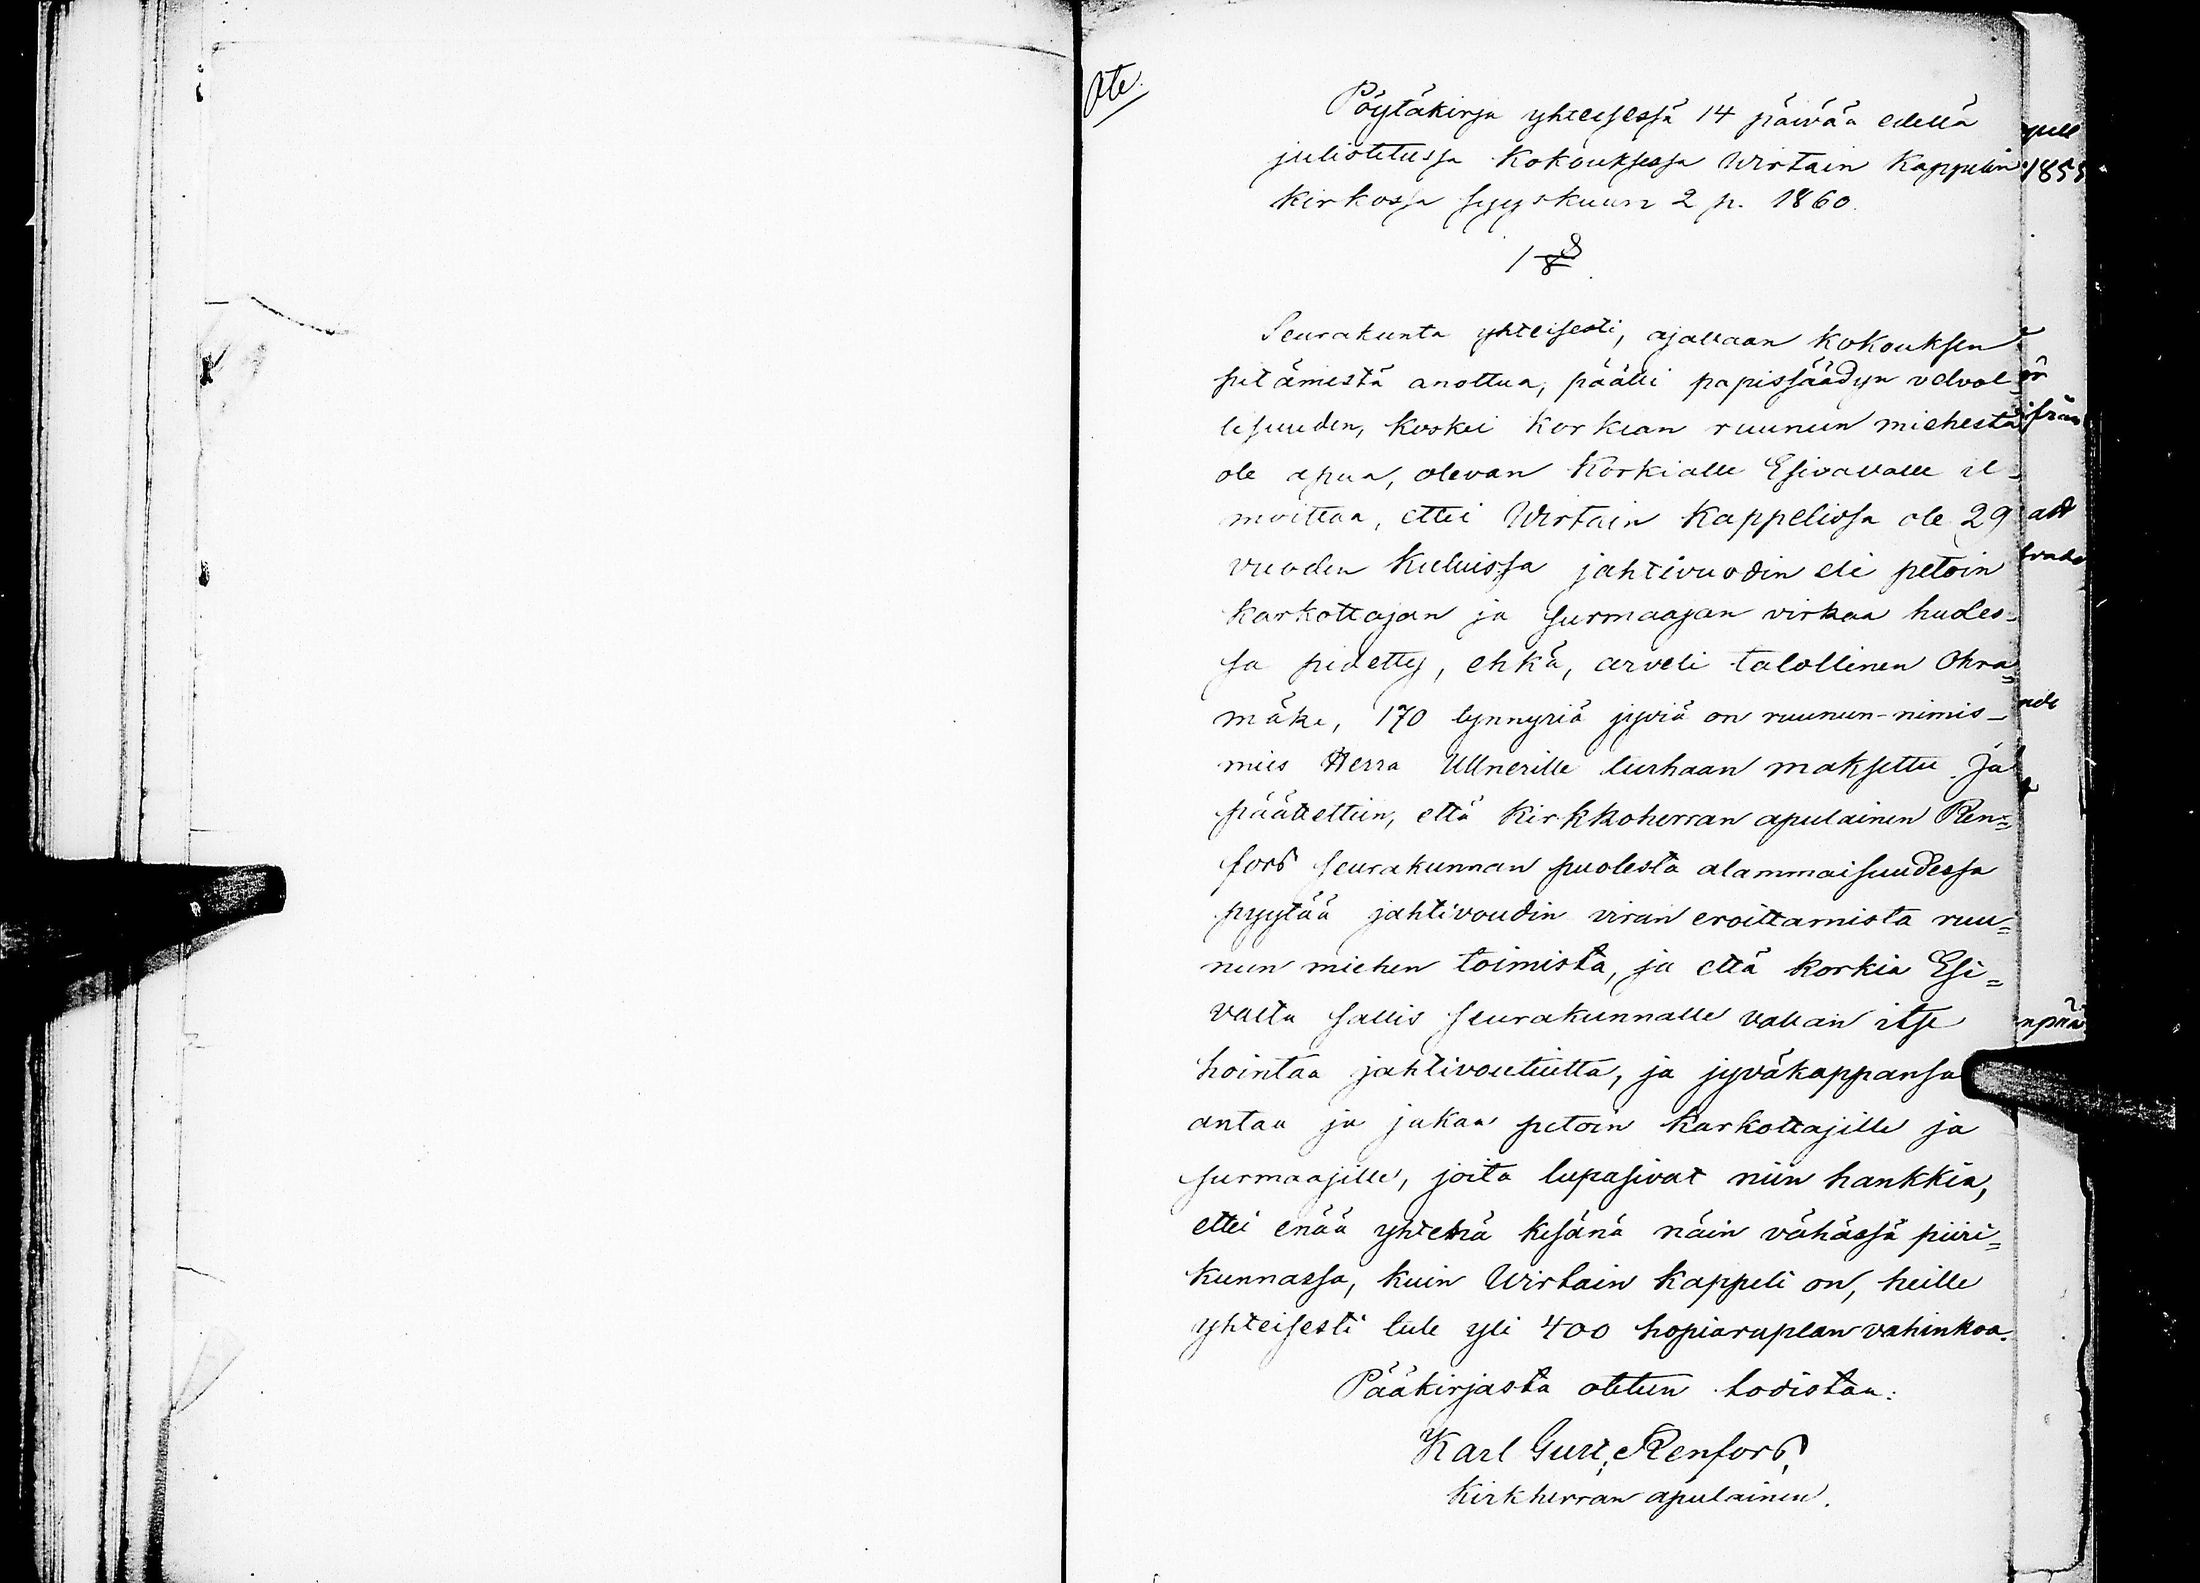 Ote.
Pöytäkirja yhteisessä 14 päivää edellä
juliotetussa Kokouksessa Wirtain Kappelin
kirkossa syyskuun 2 p. 1860.
1 §
Seurakunta yhteisesti, ajallaan kokouksen
pitämistä anottua, päätti papissäädyn velvol-
lisuuden, koskei korkian ruunun miehestä
ole apua, olevan Korkialle Esivallalle il-
moittaa, ettei Wirtain Kappelissa ole 29
vuoden kuluissa jahtivuodin eli petoin
karkottajan ja surmaajan virkaa hudes-
sa pidetty, ehkä, arveli talollinen Ohra=
mäki, 170 tynnyriä jyviä on ruunun-nimis-
mies Herra Ullnerille turhaan maksettu. Ja
päätettiin, että Kirkkoherran apulainen Ren=
fors seurakunnan puolesta alammaisuudessa
pyytää jahtivoudin viran eroittamista ruu=
nun miehen toimista, ja että korkia Esi=
valta sallis seurakunnalle vallan itse
hointaa jahtivoutiutta, ja jyväkappansa
antaa ja jakaa petoin karkottajille ja
surmaajille, joita lupasivat niin hankkia,
ettei enää yhtenä kesänä näin vähässä piiri=
kunnassa, kuin Wirtain kappeli on, heille
yhteisesti tule yli 400 hopiaruplan vahinkoa.
Pääkirjasta otetun todistaa:
Karl Gust. Renfors,
Kirkherran apulainen.
1855
ifrån
att